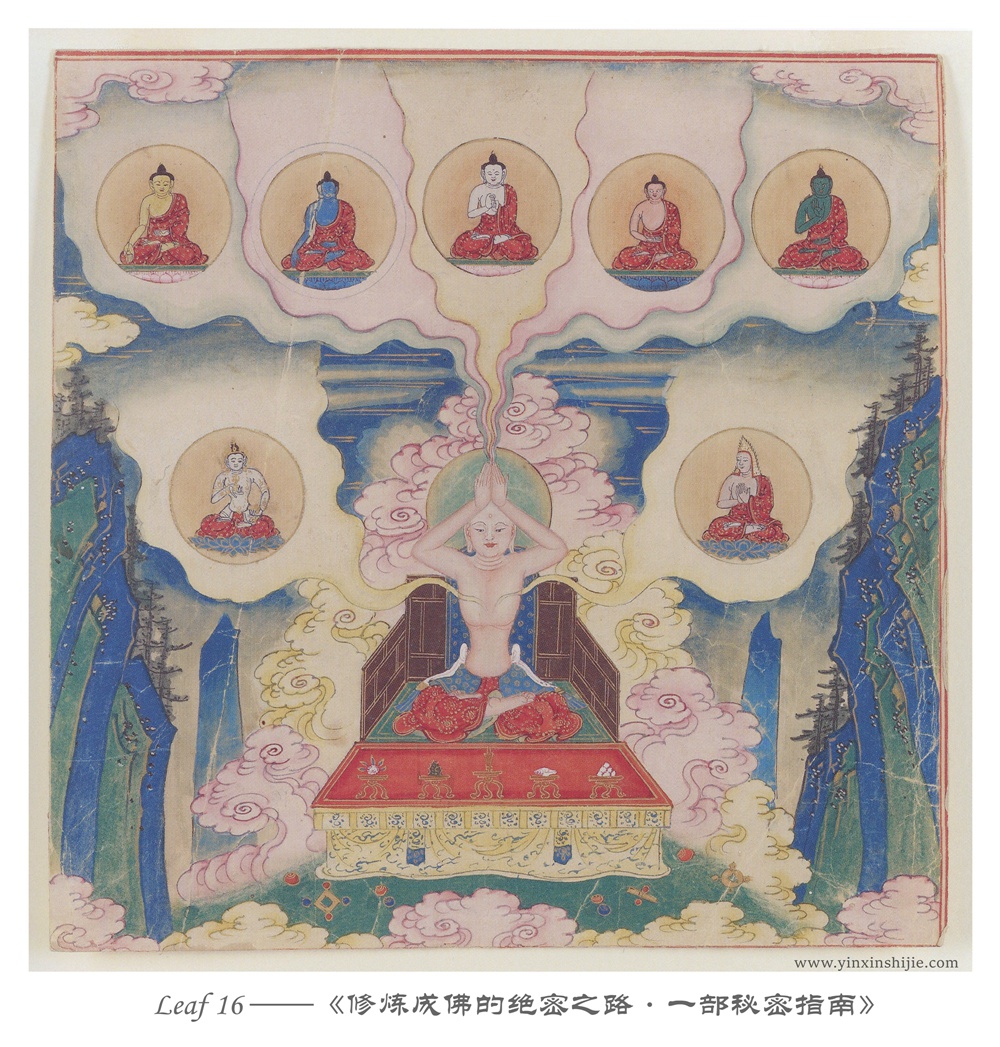 www.yinxinshijie.com
Leaf 16——《修炼成佛的绝密之路·一部秘密指南》